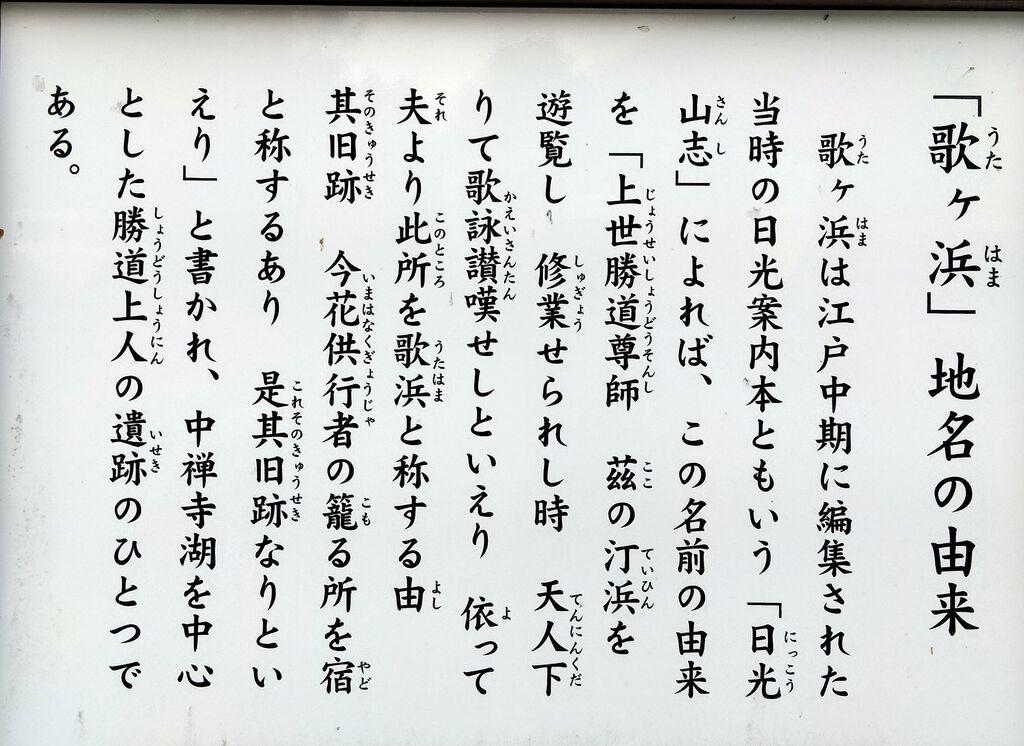 「歌ヶ浜」地名の由来
歌ヶ浜は江戸中期に編集された
当時の日光案内本ともいう「日光
山志」によれば、この名前の由来
を「上世勝道尊師　茲の汀浜を
遊覧し　修業せられし時　天人下
りて歌詠讃嘆せしといえり　依って
夫より此所を歌浜と称する由
其旧跡　今花供行者の籠る所を宿
と称するあり　是其旧跡なりとい
えり」と書かれ、中禅寺湖を中心
とした勝道上人の遺跡のひとつで
ある。